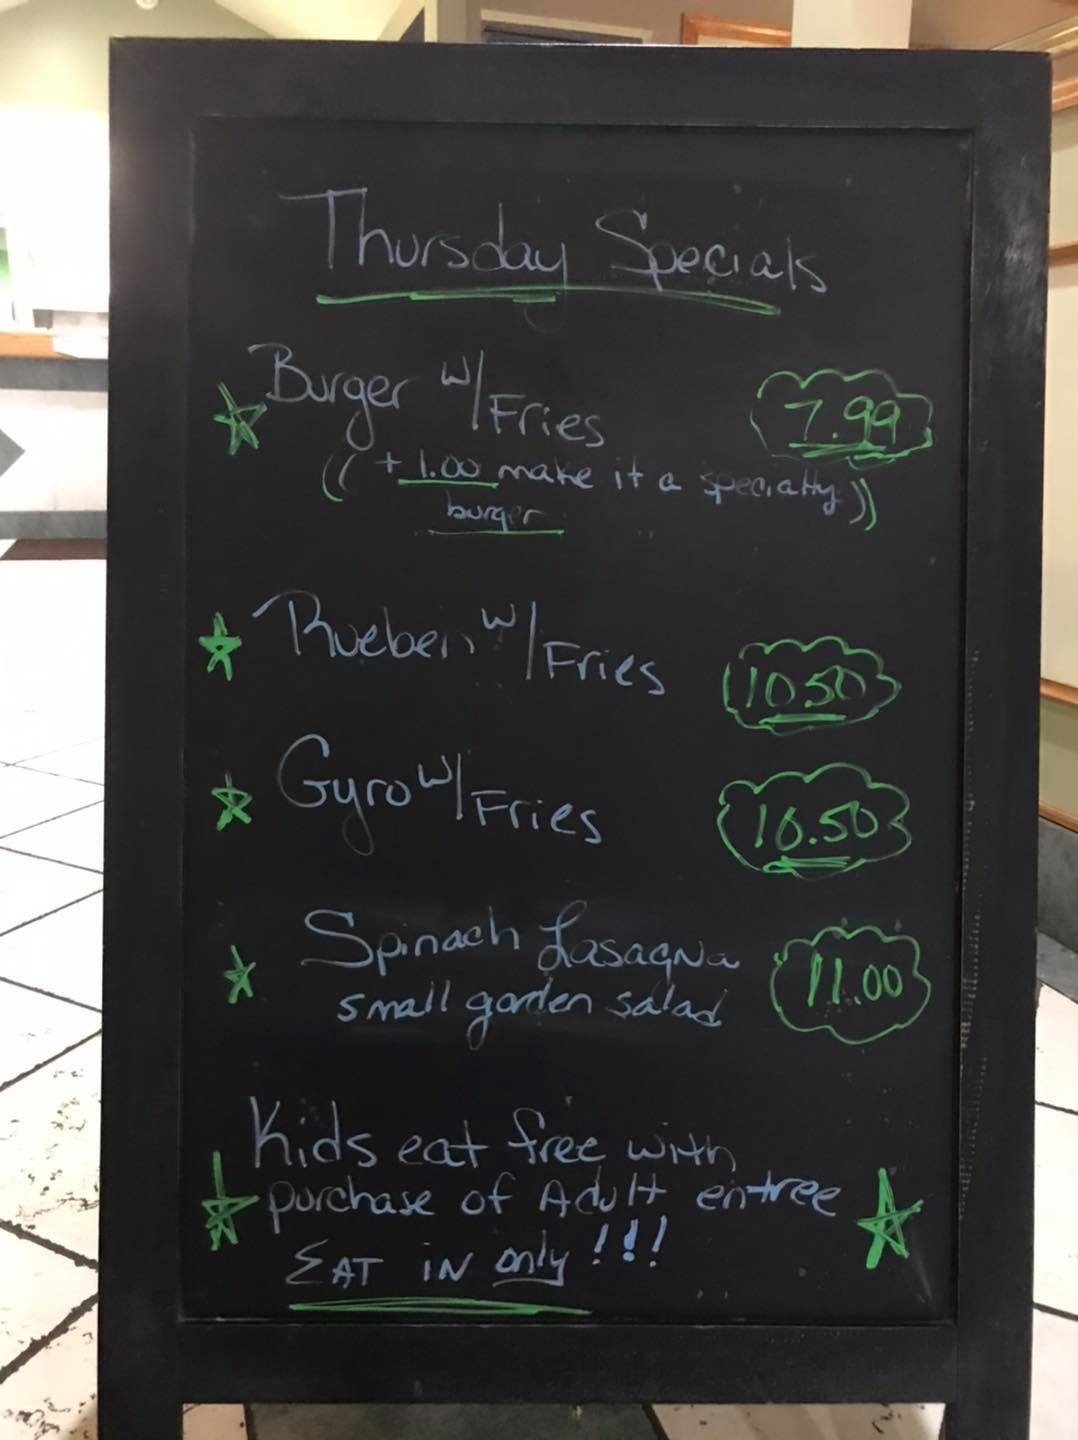 Thursday Specials
Burger w/ Fries 7.99
(( + 1.00 make it a specialty ))
burger
Rueben w/ Fries 10.50
Gyro w/ Fries 10.50
Spinach Lasagna 11.00
small garden salad
Kids eat free with
purchase of Adult entree
EAT IN only!!!